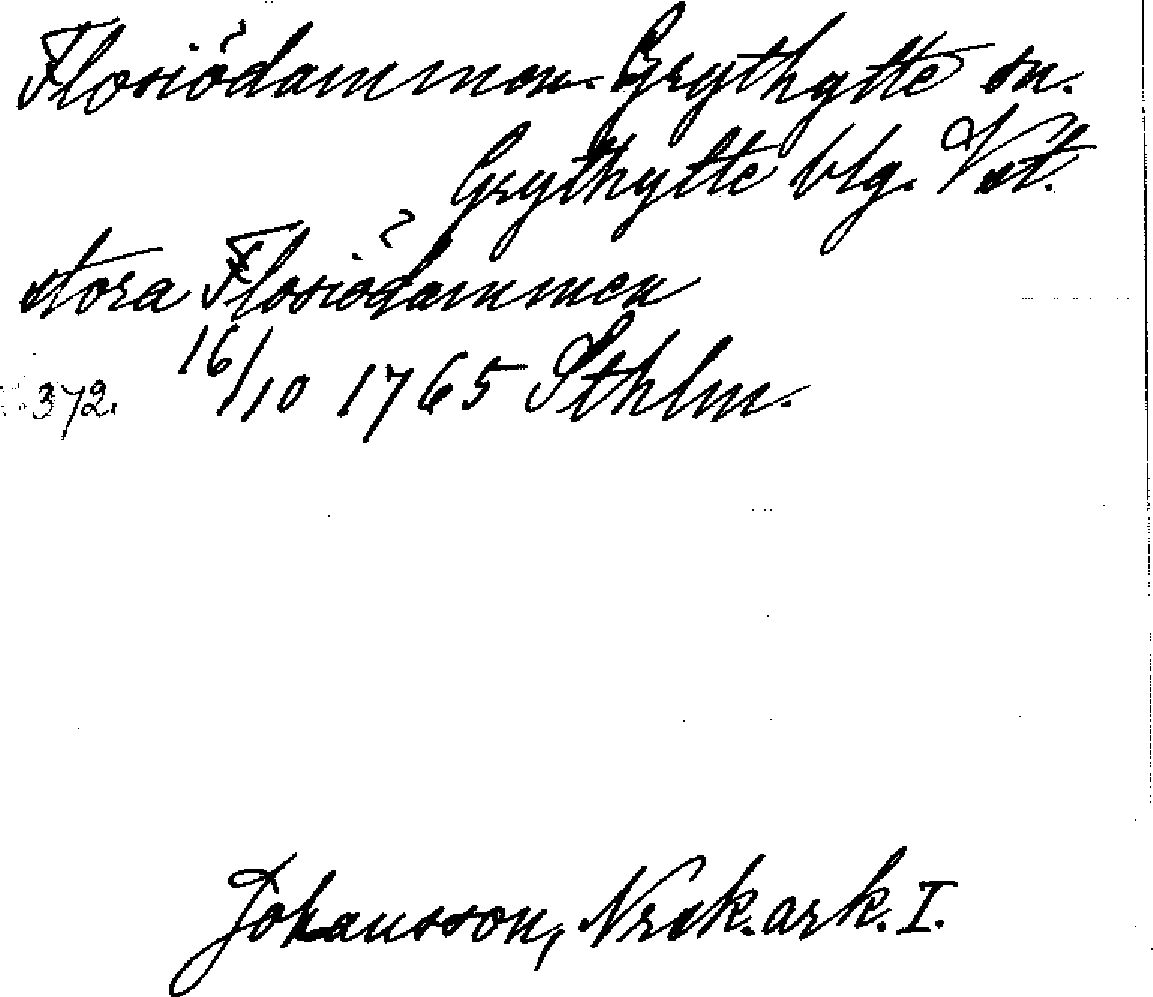 Flosiödammen. Grythytte sn.
Grythytte blg. Vst.
stora Flosiödammen
372. 16/10 1765 Sthlm.
Johansson, Nrsk. ark. I.